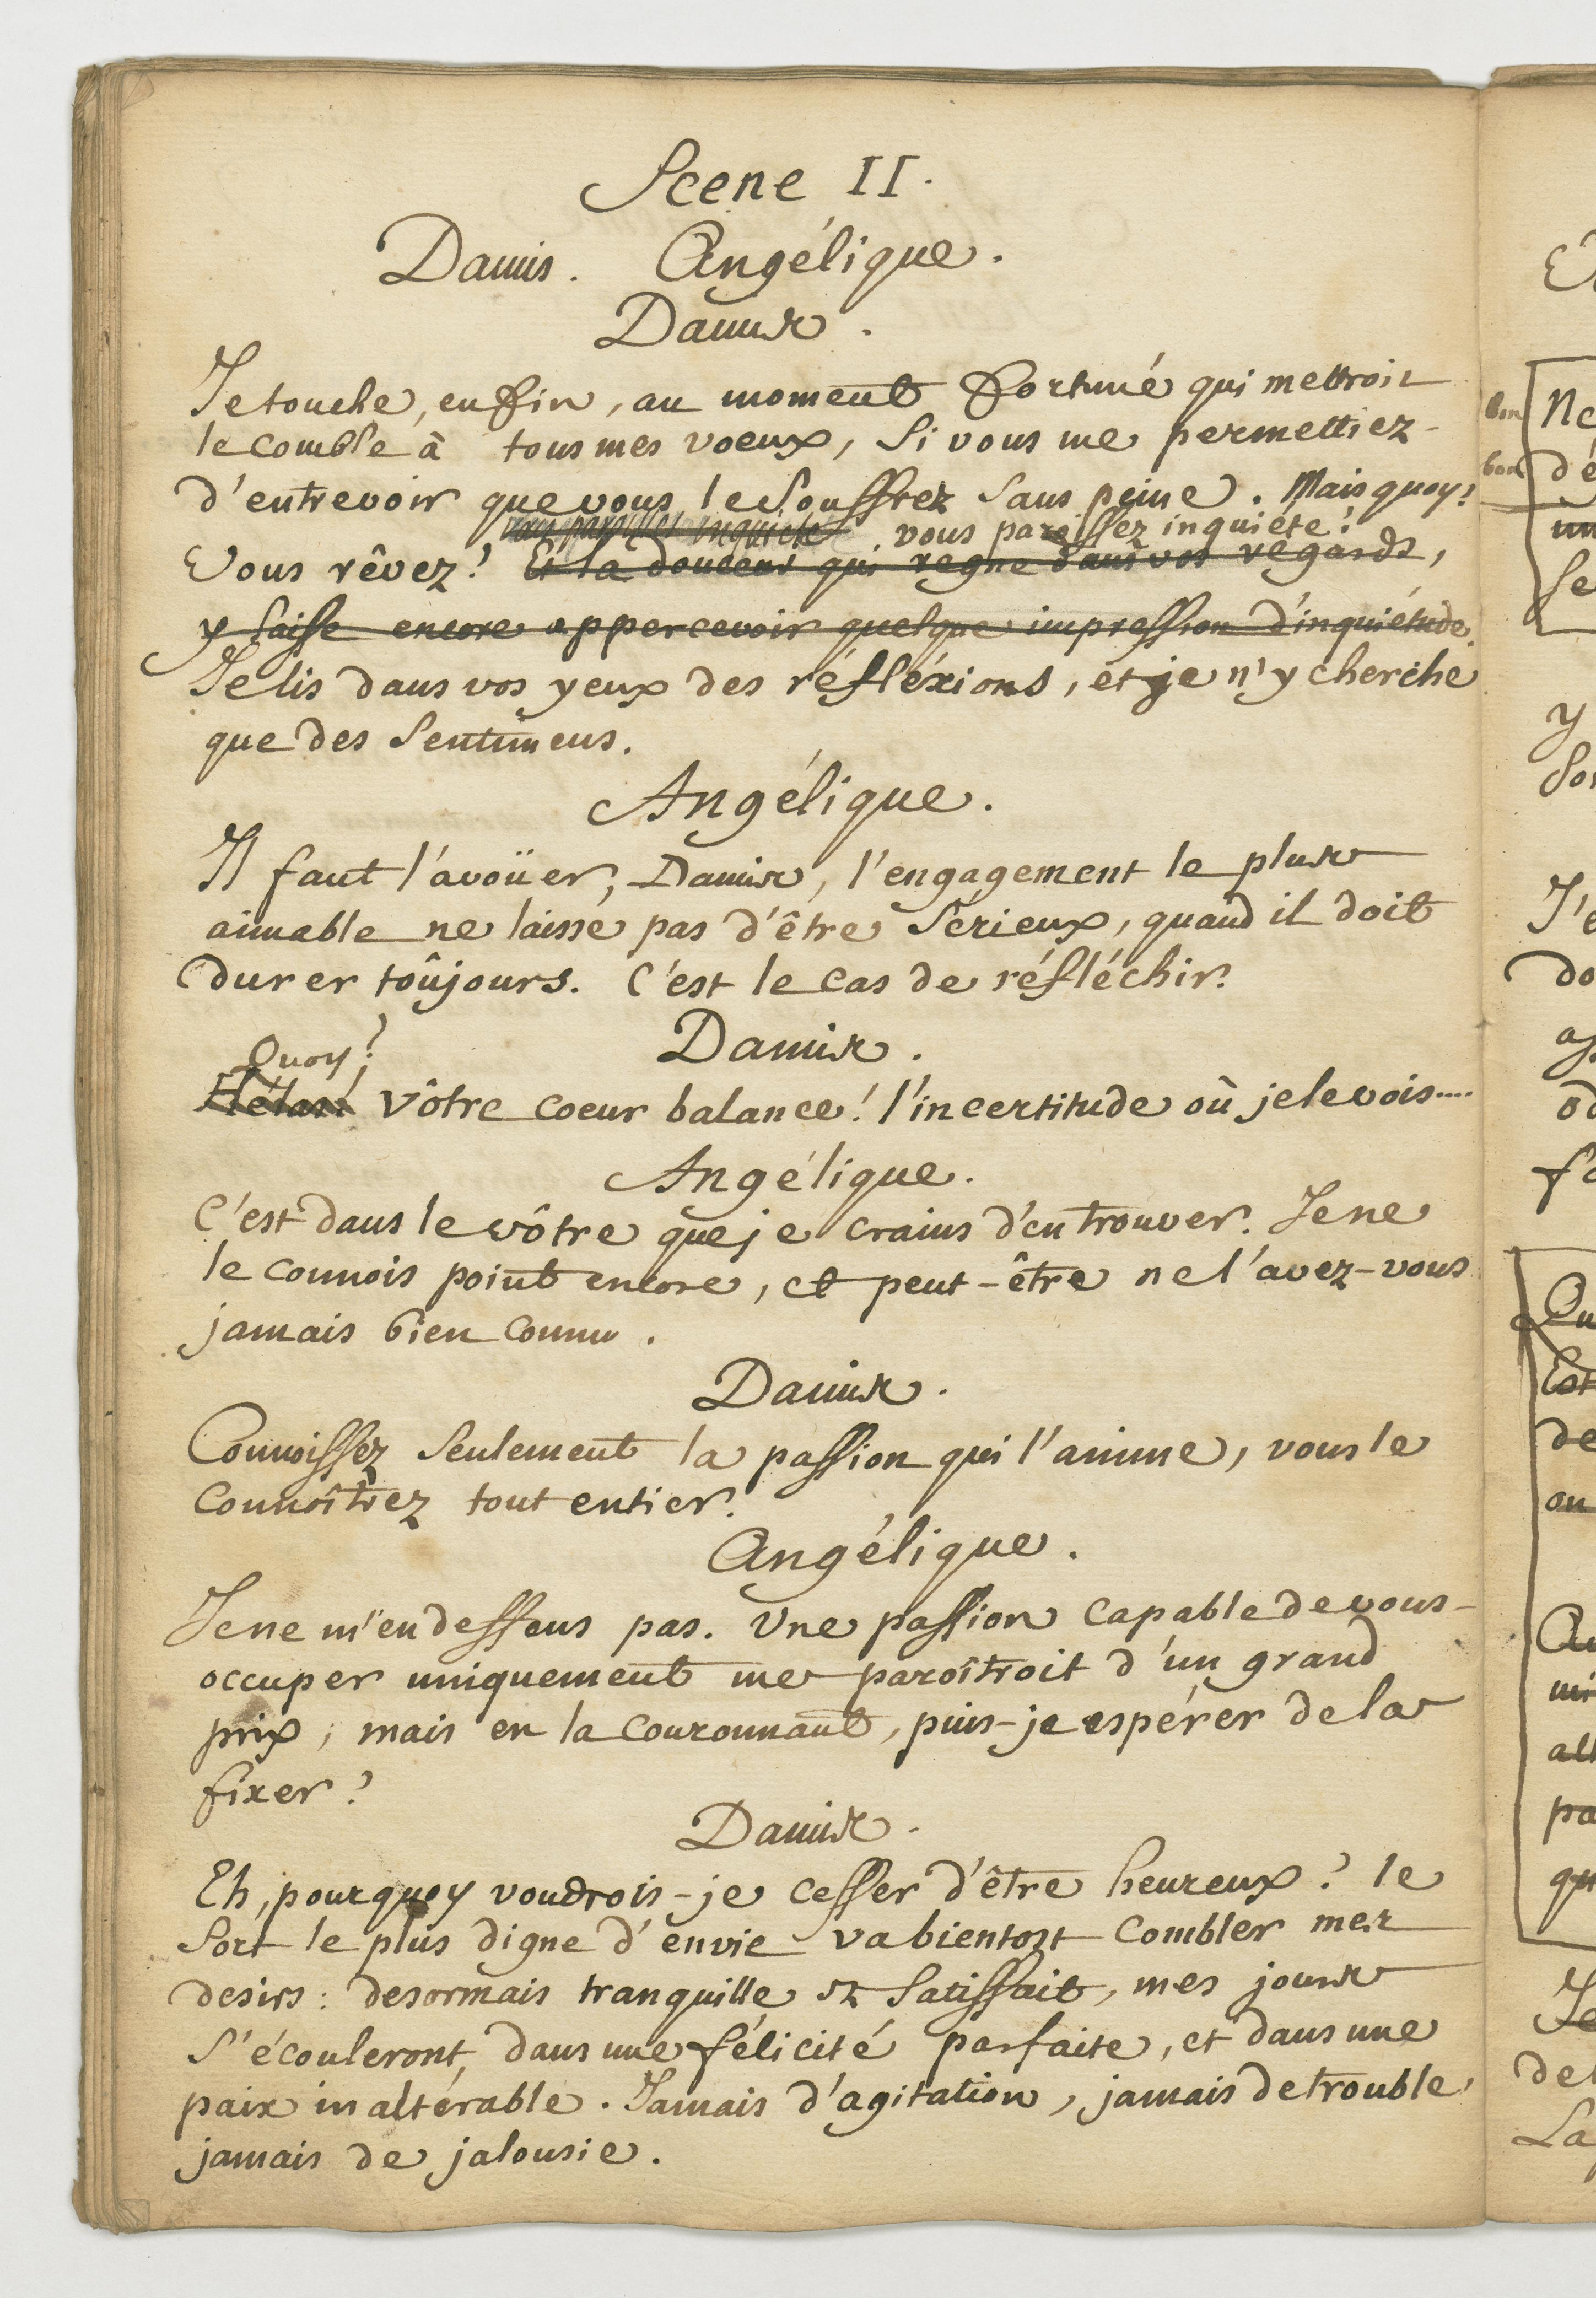 Scene II.
Damis. Angélique.
Damis.
Je touche, enfin, au moment fortuné qui mettroit
le comble à tous mes voeux, si vous me permettiez-
d'entrevoir que vous le souffrez sans peine. Mais quoy?
vous paroissez inquiéte vous paroissez inquiéte!
Vous rêvez! Et la douceur qui regne dans vos regards,
y laisse encore appercevoir quelque impression d'inquiétude.
Je lis dans vos yeux des réfléxions, et je n'y cherche
que des sentimens.
Angélique.
Il faut l'avoüer, Damis, l'engagement le plus
aimable ne laisse pas d'être sérieux, quand il doit
durer toûjours. C'est le cas de réfléchir.
Damis.
Quoy?
Hélas! vôtre coeur balance! l'incertitude où je le vois....
Angélique.
C'est dans le vôtre que je crains d'en trouver. Je ne
le connois point encore, et peut-être ne l'avez-vous
jamais bien connu.
Damis.
Connoissez seulement la passion qui l'anime, vous le
connoîtrez tout entier.
Angélique.
Je ne m'en deffens pas. Une passion capable de vous-
occuper uniquement me paroîtroit d'un grand
prix, mais en la couronnant, puis-je espérer de la
fixer?
Damis.
Eh, pourquoy voudrois-je cesser d'être heureux? le
sort le plus digne d'envie va bientost combler mes
desirs: desormais tranquille et satisfait, mes jours
s'écouleront, dans une félicité parfaite, et dans une
paix inaltérable. Jamais d'agitation, jamais de trouble,
jamais de jalousie.
bon
bon